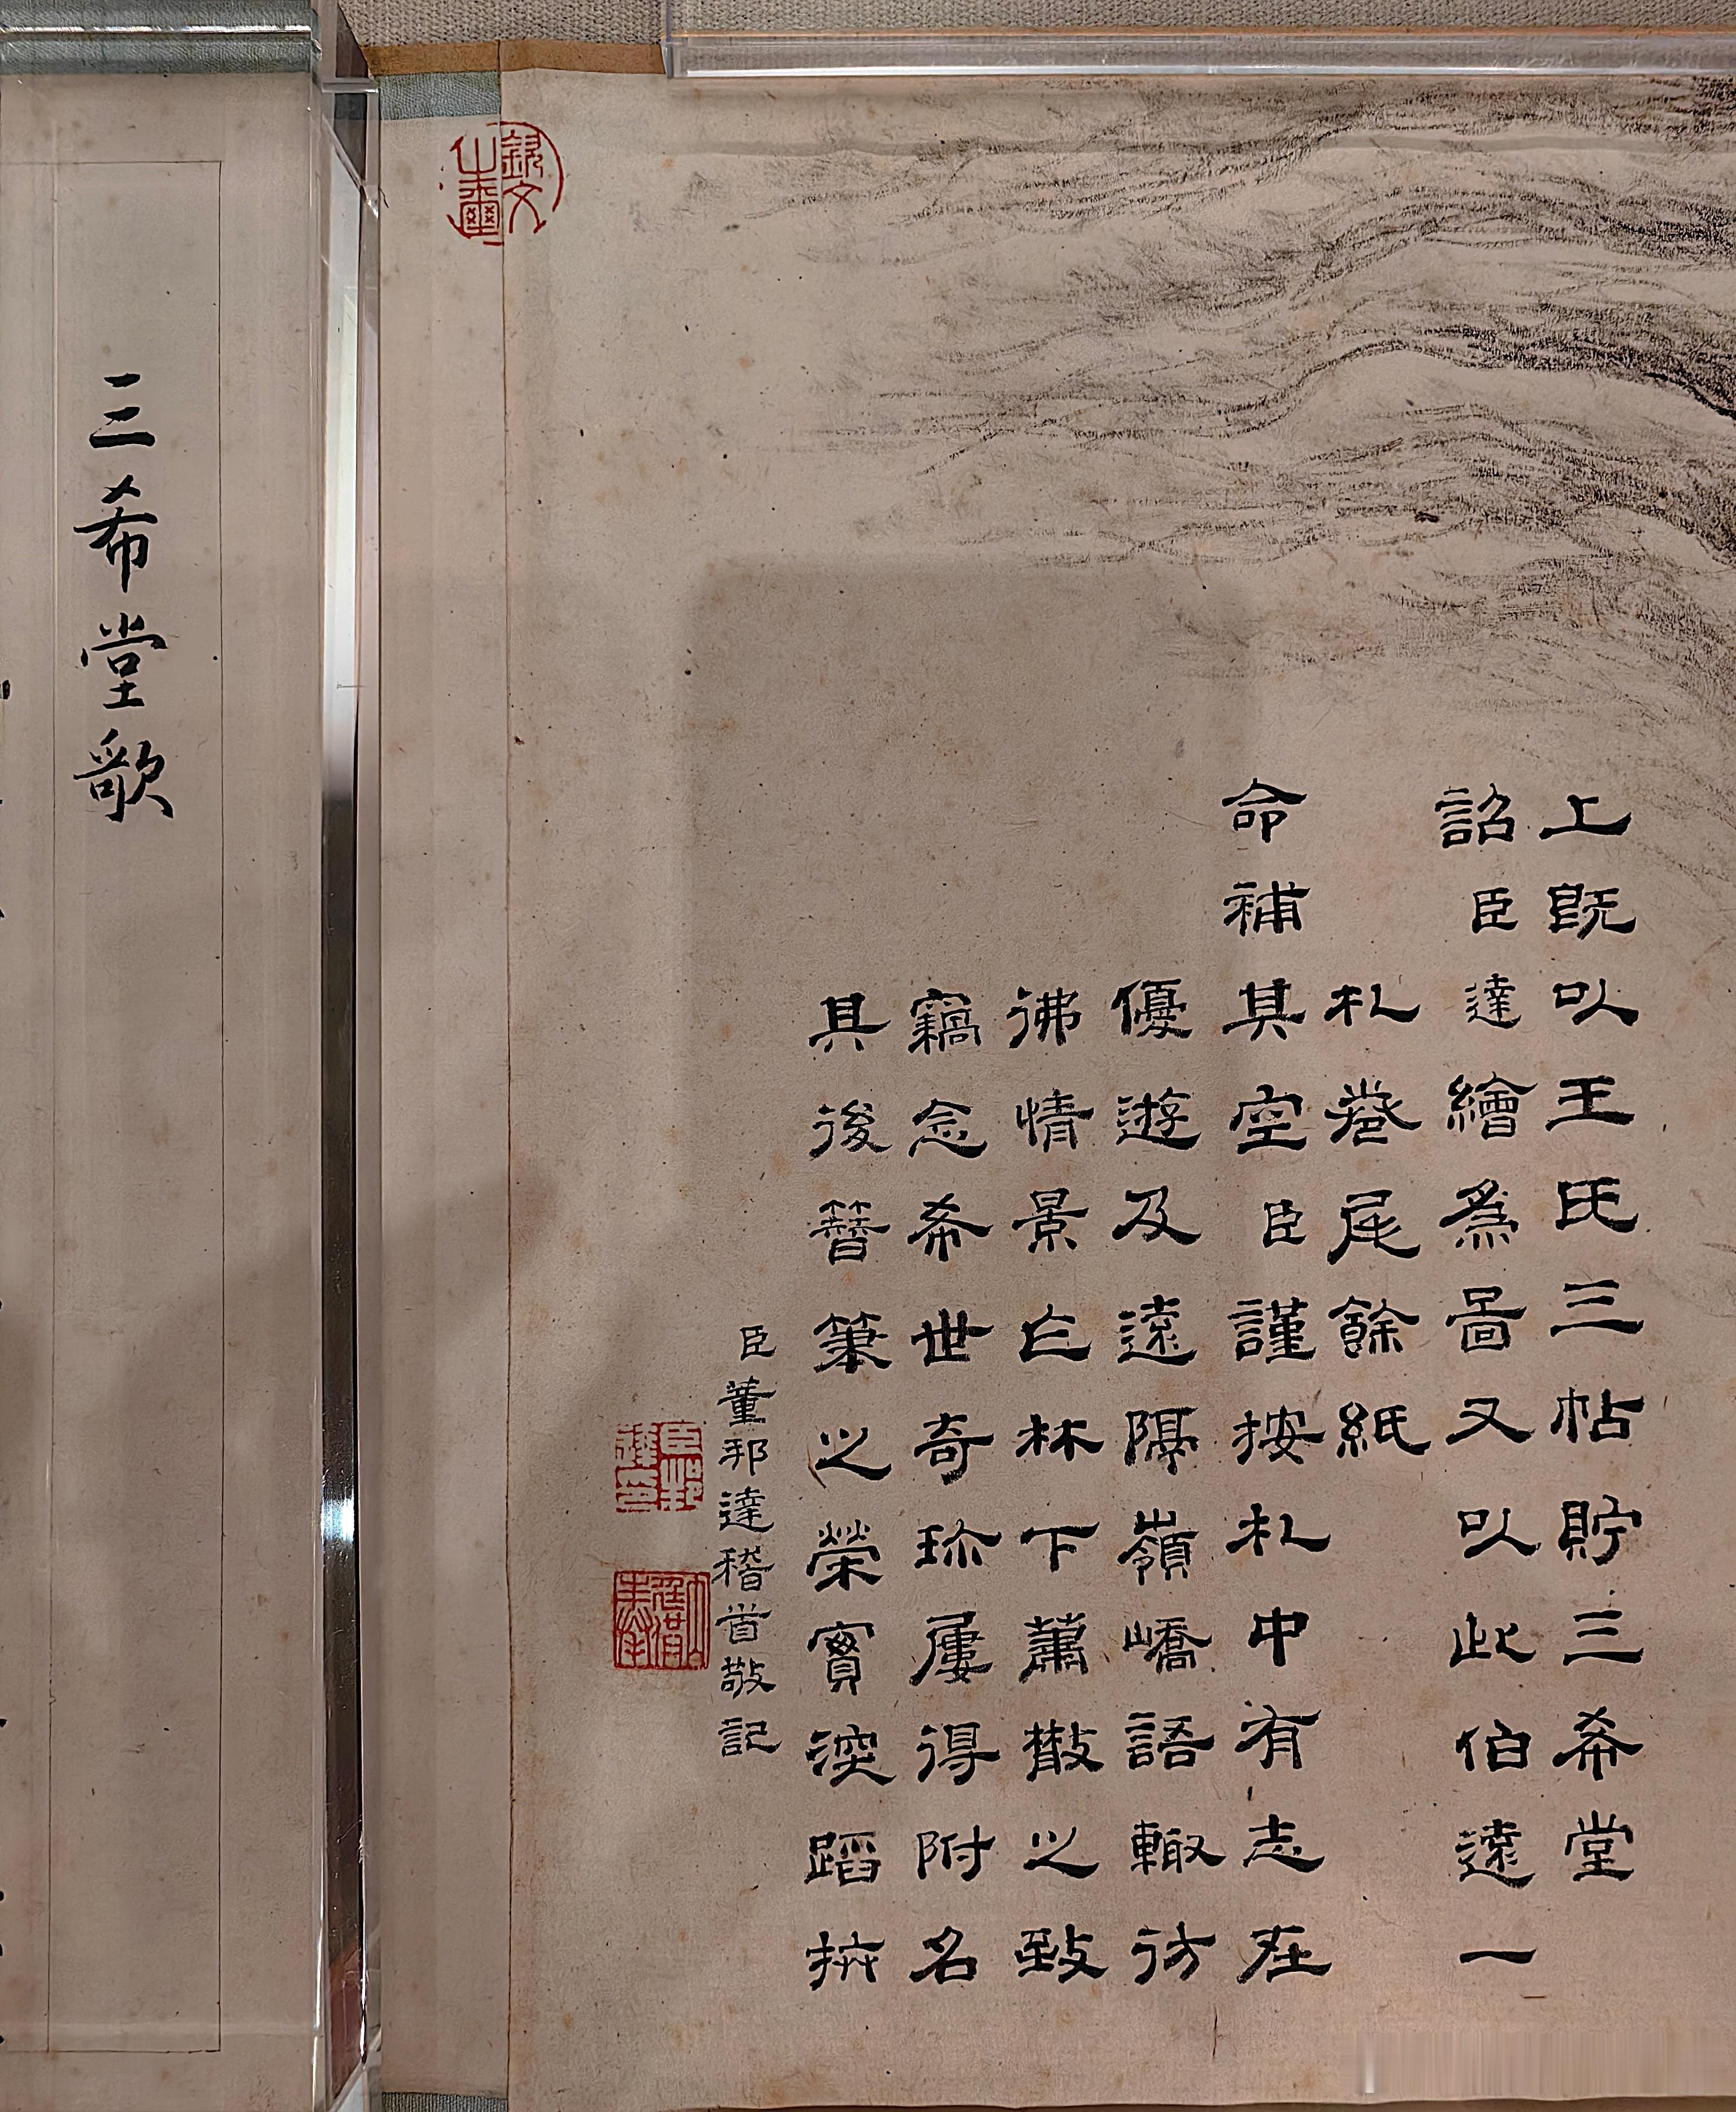 上既以王氏三帖貯三希堂
詔臣達繪為圖又以此伯遠一
札卷尾餘紙
命補其空臣謹按札中有志在
優遊及遠隔嶺嶠語輙彷
彿情景於林下蕭散之致
竊念希世奇珎屢得附名
其後簪筆之榮實深蹈抃
臣董邦達稽首敬記
臣邦達印
三希堂歌